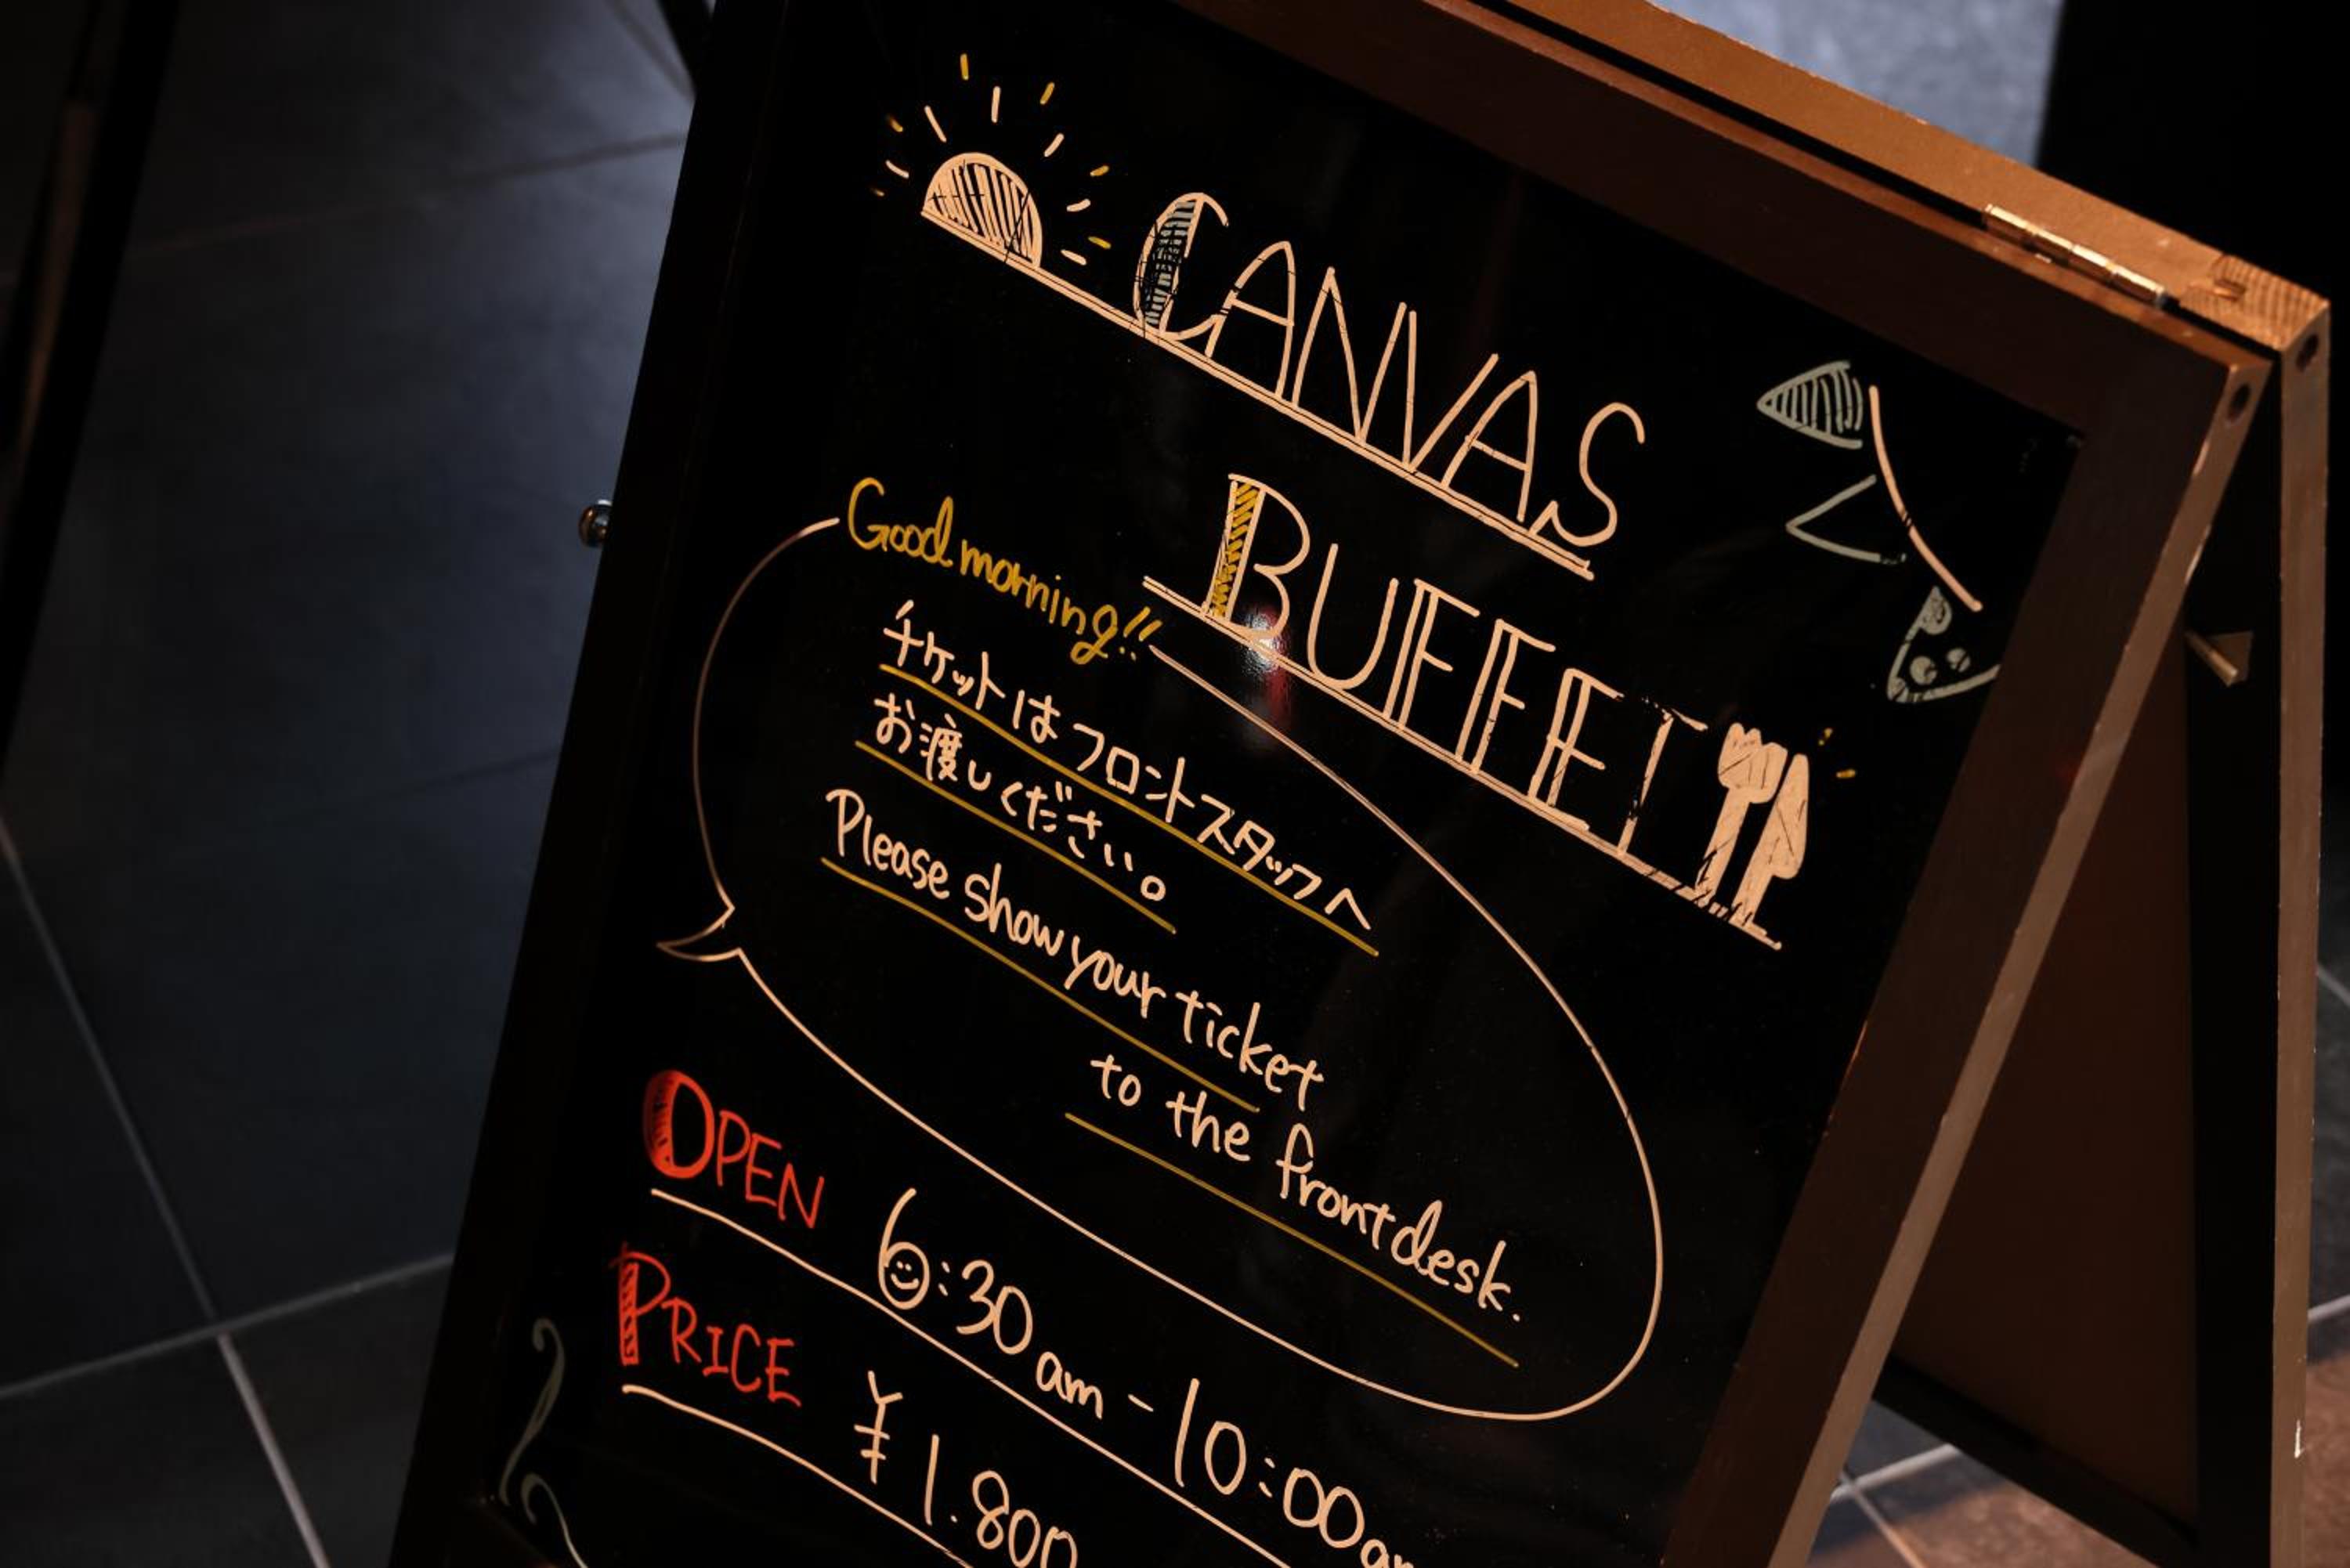 CANVAS
BUFFET
Good morning!!
チケットはフロントスタッフへ
お渡しください。
Please show your ticket
to the frontdesk.
OPEN 6:30am-10:00am
PRICE ¥1.800